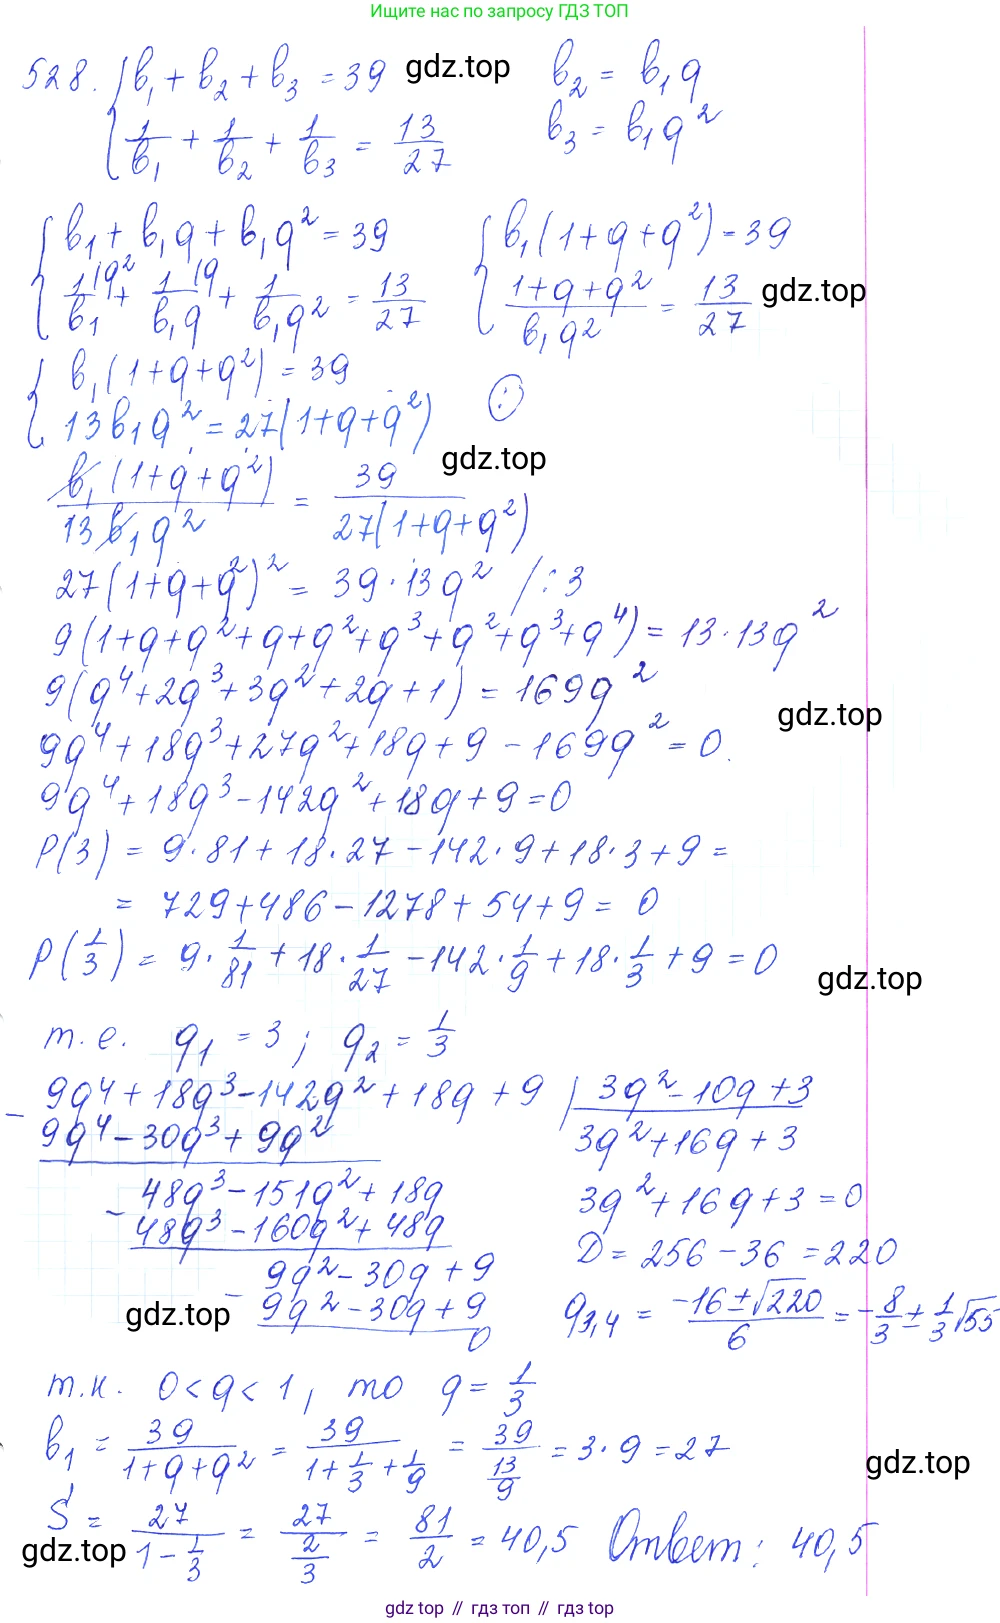 Ищите по запросу ГДЗ ТОП
528. { b₁ + b₂ + b₃ = 39 gdz.top b₂ = b₁q
1/b₁ + 1/b₂ + 1/b₃ = 13/27 b₃ = b₁q²
{ b₁ + b₁q + b₁q² = 39 { b₁(1+q+q²) = 39
1/b₁ \q² + 1/b₁q \q + 1/b₁q² = 13/27 (1+q+q²)/(b₁q²) = 13/27 gdz.top
{ b₁(1+q+q²) = 39
13b₁q² = 27(1+q+q²) (:)
gdz.top
b₁(1+q+q²)/(13b₁q²) = 39/(27(1+q+q²))
27(1+q+q²)² = 39·13q² /:3
9(1+q+q²+q+q²+q³+q²+q³+q⁴) = 13·13q²
9(q⁴+2q³+3q²+2q+1) = 169q²
gdz.top
9q⁴+18q³+27q²+18q+9-169q² = 0
9q⁴+18q³-142q²+18q+9=0
P(3) = 9·81+18·27-142·9+18·3+9=
= 729+486-1278+54+9= 0
P(1/3) = 9·1/81+18·1/27-142·1/9+18·1/3+9=0
gdz.top
т.е. q₁ = 3; q₂ = 1/3
- 9q⁴+18q³-142q²+18q+9 | 3q²-10q+3
9q⁴-30q³+9q² 3q²+16q+3
- 48q³-151q²+18q 3q²+16q+3=0
48q³-160q²+48q D=256-36=220
- 9q²-30q+9
gdz.top 9q²-30q+9 q₃,₄ = (-16±√220)/6 = -8/3 ± 1/3√55
0
т.к. 0<q<1, то q = 1/3
b₁ = 39/(1+q+q²) = 39/(1+1/3+1/9) = 39/(13/9) = 3·9=27 gdz.top
S = 27/(1-1/3) = 27/(2/3) = 81/2 = 40,5 Ответ: 40,5
gdz.top
gdz.top // гдз.топ // гдз.top